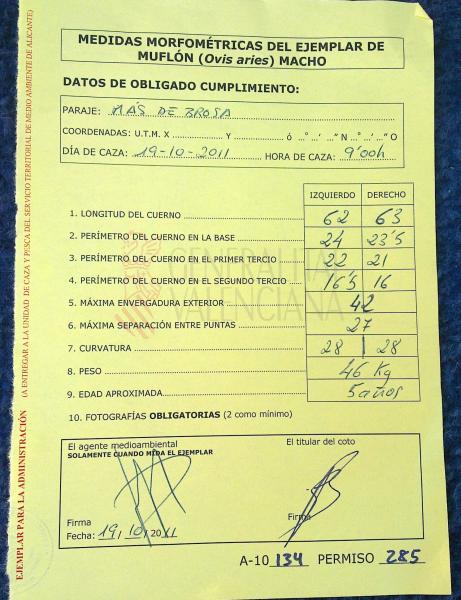 MEDIDAS MORFOMÉTRICAS DEL EJEMPLAR DE
MUFLÓN (Ovis aries) MACHO
DATOS DE OBLIGADO CUMPLIMIENTO:
PARAJE: MÁS DE BROSA
COORDENADAS: U.T.M. X ............... Y ............... ó ...°...'...."N ...°...'...."O
DÍA DE CAZA: 19-10-2011 HORA DE CAZA: 9'00h
IZQUIERDO DERECHO
1. LONGITUD DEL CUERNO 62 63
2. PERÍMETRO DEL CUERNO EN LA BASE 24 23'5
3. PERÍMETRO DEL CUERNO EN EL PRIMER TERCIO 22 21
4. PERÍMETRO DEL CUERNO EN EL SEGUNDO TERCIO 16'5 16
5. MÁXIMA ENVERGADURA EXTERIOR 42
6. MÁXIMA SEPARACIÓN ENTRE PUNTAS 27
7. CURVATURA 28 28
8. PESO 46 Kg
9. EDAD APROXIMADA 5 años
10. FOTOGRAFÍAS OBLIGATORIAS (2 como mínimo)
GENERALITAT
VALENCIANA
El agente medioambiental El titular del coto
SOLAMENTE CUANDO MIDA EL EJEMPLAR
Firma Firma
Fecha: 19/10/2011
A-10 134 PERMISO 285
EJEMPLAR PARA LA ADMINISTRACIÓN (A ENTREGAR A LA UNIDAD DE CAZA Y PESCA DEL SERVICIO TERRITORIAL DE MEDIO AMBIENTE DE ALICANTE)